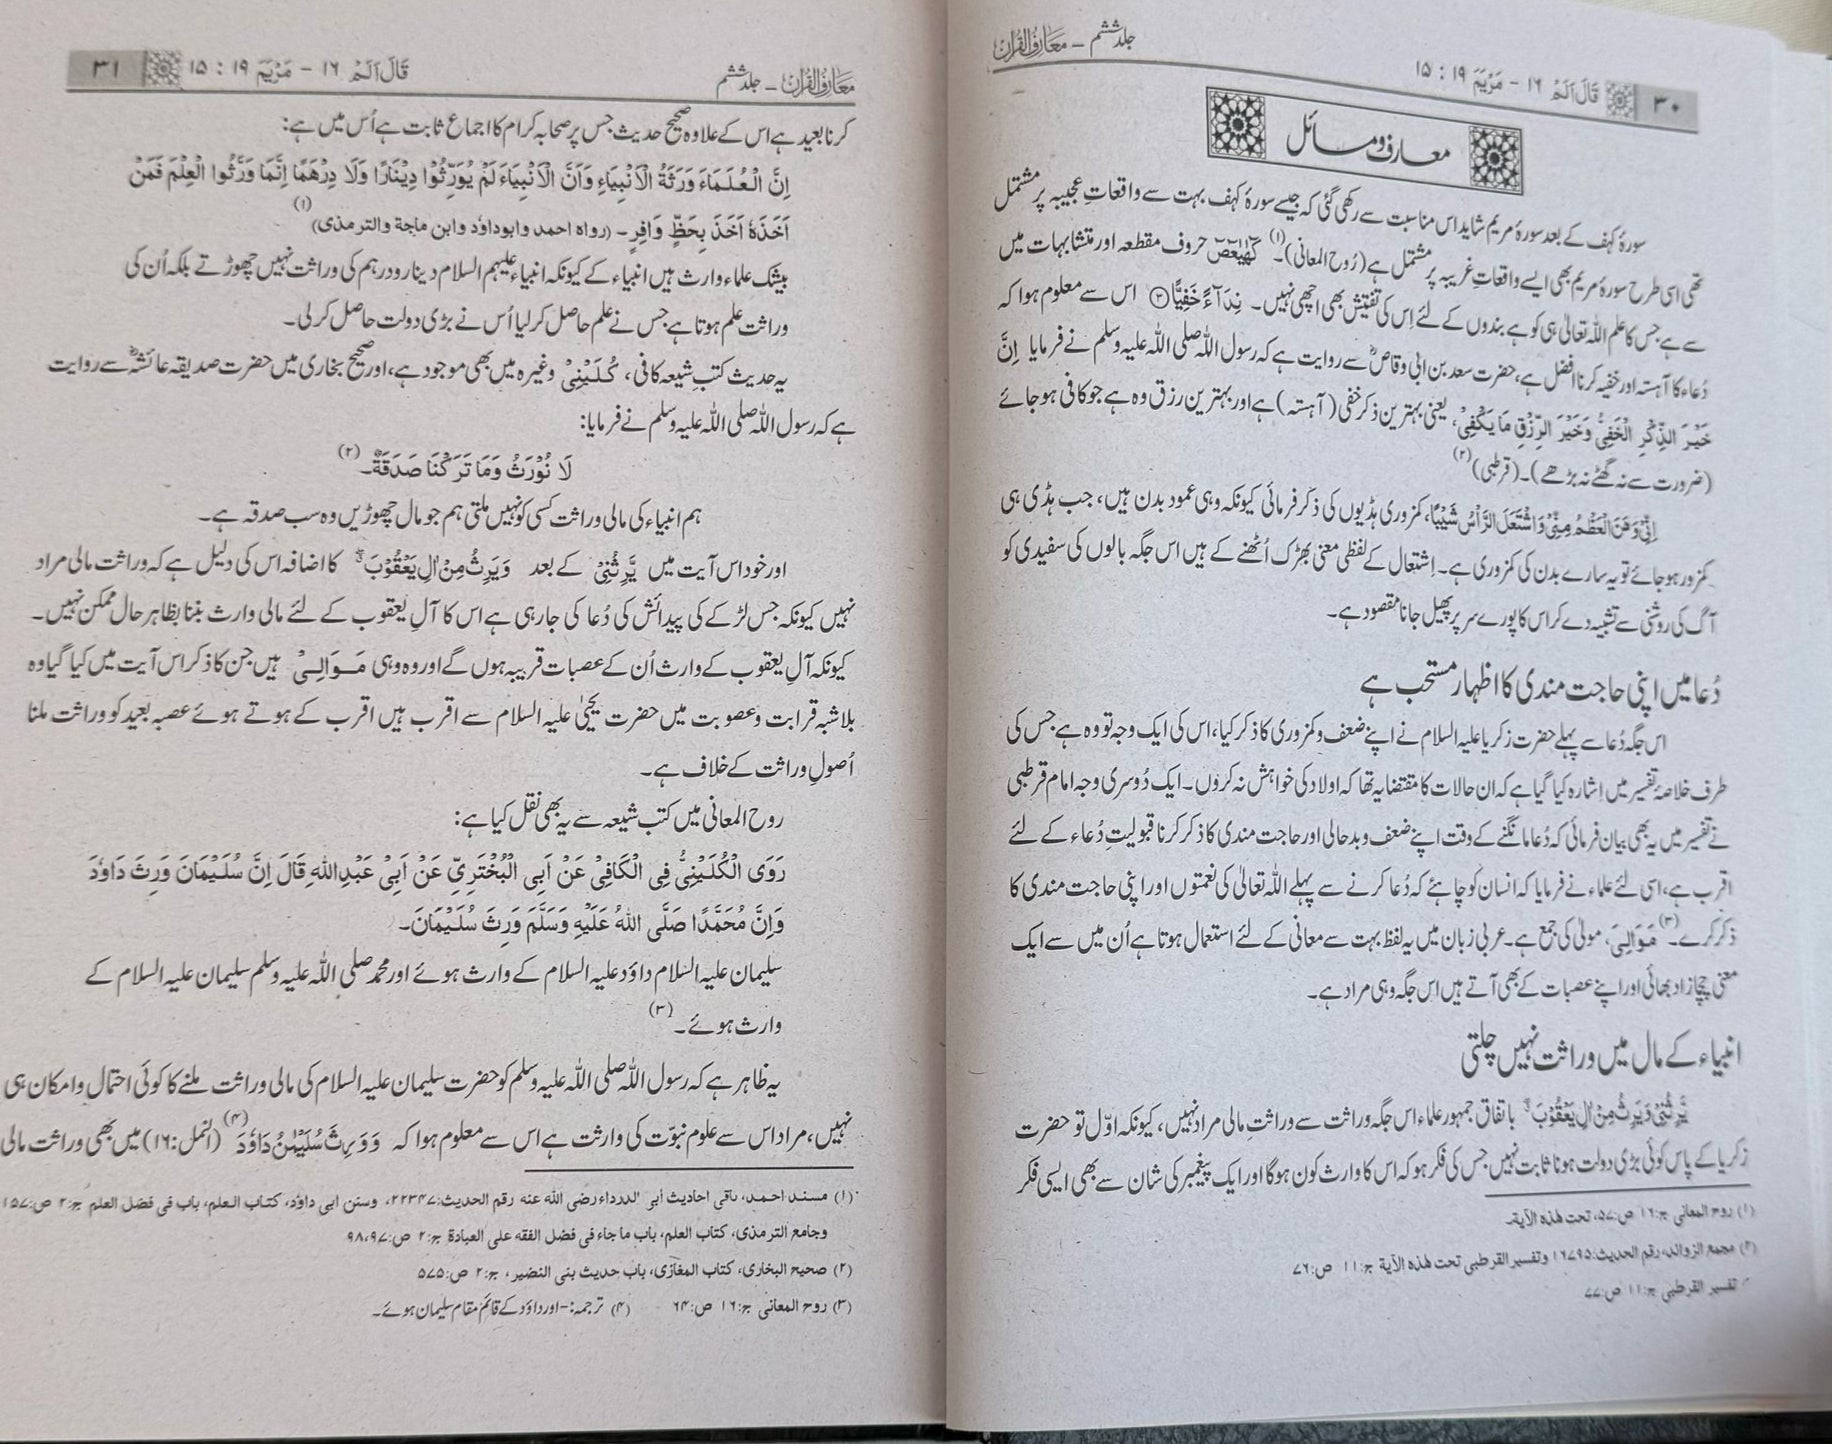 جلد ششم – معارف القرآن
۳۰ قَالَ اَلَمْ ۱۶ – مَرْیَمَ ۱۹ : ۱۵
معارف و مسائل
سورۂ کہف کے بعد سورۂ مریم شاید اس مناسبت سے رکھی گئی کہ جیسے سورۂ کہف بہت سے واقعاتِ عجیبہ پر مشتمل
تھی اسی طرح سورۂ مریم بھی ایسے واقعاتِ غریبہ پر مشتمل ہے (رُوح المعانی)۔(۱) کٓهٰیٰعٓصٓ حروف مقطعہ اور متشابہات میں
سے ہے جس کا علم اللہ تعالیٰ ہی کو ہے بندوں کے لئے اِس کی تفتیش بھی اچھی نہیں۔ نِدَآءً خَفِیًّا ۳ اس سے معلوم ہوا کہ
دُعاء کا آہستہ اور خفیہ کرنا افضل ہے، حضرت سعد بن ابی وقاصؓ سے روایت ہے کہ رسول اللہ صلی اللہ علیہ وسلم نے فرمایا اِنَّ
خَیْرَ الذِّکْرِ الْخَفِیُّ وَخَیْرَ الرِّزْقِ مَا یَکْفِیْ، یعنی بہترین ذکر خفی (آہستہ) ہے اور بہترین رزق وہ ہے جو کافی ہو جائے
(ضرورت سے نہ گھٹے نہ بڑھے)۔ (قرطبی)(۲)
اِنِّیْ وَهَنَ الْعَظْمُ مِنِّیْ وَاشْتَعَلَ الرَّاْسُ شَیْبًا، کمزوری ہڈیوں کی ذکر فرمائی کیونکہ وہی عمود بدن ہیں، جب ہڈی ہی
کمزور ہو جائے تو یہ سارے بدن کی کمزوری ہے۔ اِشتعال کے لفظی معنی بھڑک اُٹھنے کے ہیں اس جگہ بالوں کی سفیدی کو
آگ کی روشنی سے تشبیہ دے کر اس کا پورے سر پر پھیل جانا مقصود ہے۔
دُعا میں اپنی حاجت مندی کا اظہار مستحب ہے
اس جگہ دُعا سے پہلے حضرت زکریا علیہ السلام نے اپنے ضعف و کمزوری کا ذکر کیا، اس کی ایک وجہ تو وہ ہے جس کی
طرف خلاصۂ تفسیر میں اشارہ کیا گیا ہے کہ ان حالات کا مقتضا یہ تھا کہ اولاد کی خواہش نہ کروں۔ ایک دُوسری وجہ امام قرطبی
نے تفسیر میں یہ بھی بیان فرمائی کہ دُعا مانگنے کے وقت اپنے ضعف و بدحالی اور حاجت مندی کا ذکر کرنا قبولیتِ دُعاء کے لئے
اقرب ہے، اسی لئے علماء نے فرمایا کہ انسان کو چاہئے کہ دُعا کرنے سے پہلے اللہ تعالیٰ کی نعمتوں اور اپنی حاجت مندی کا
ذکر کرے۔(۳) مَوَالِیَ، مولیٰ کی جمع ہے۔ عربی زبان میں یہ لفظ بہت سے معانی کے لئے استعمال ہوتا ہے اُن میں سے ایک
معنی چچازاد بھائی اور اپنے عصبات کے بھی آتے ہیں اس جگہ وہی مراد ہے۔
انبیاء کے مال میں وراثت نہیں چلتی
یَّرِثُنِیْ وَیَرِثُ مِنْ اٰلِ یَعْقُوْبَ باتفاق جمہور علماء اس جگہ وراثت سے وراثتِ مالی مراد نہیں، کیونکہ اوّل تو حضرت
زکریا کے پاس کوئی بڑی دولت ہونا ثابت نہیں جس کی فکر ہو کہ اس کا وارث کون ہوگا اور ایک پیغمبر کی شان سے بھی ایسی فکر
(۱) روح المعانی ج:۱۶ ص:۵۷، تحت هٰذه الآية۔
(۲) مجمع الزوائد، رقم الحدیث:۱۶۷۹۵ وتفسیر القرطبی تحت هٰذه الآیة ج:۱۱ ص:۷۶
تفسیر القرطبی ج:۱۱ ص:۷۷
معارف القرآن – جلد ششم
قَالَ اَلَمْ ۱۶ – مَرْیَمَ ۱۹ : ۱۵ ۳۱
کرنا بعید ہے اس کے علاوہ صحیح حدیث جس پر صحابہ کرام کا اجماع ثابت ہے اُس میں ہے:
اِنَّ الْعُلَمَاءَ وَرَثَةُ الْاَنْبِیَاءِ وَاَنَّ الْاَنْبِیَاءَ لَمْ یُوَرِّثُوْا دِیْنَارًا وَلَا دِرْهَمًا اِنَّمَا وَرَّثُوا الْعِلْمَ فَمَنْ
اَخَذَهٗ اَخَذَ بِحَظٍّ وَافِرٍ۔ (رواه احمد وابوداوٗد وابن ماجة والترمذی)(۱)
بیشک علماء وارث ہیں انبیاء کے کیونکہ انبیاء علیہم السلام دینار و درہم کی وراثت نہیں چھوڑتے بلکہ اُن کی
وراثت علم ہوتا ہے جس نے علم حاصل کر لیا اُس نے بڑی دولت حاصل کر لی۔
یہ حدیث کتبِ شیعہ کافی، کُلَیْنِیْ وغیرہ میں بھی موجود ہے، اور صحیح بخاری میں حضرت صدیقہ عائشہؓ سے روایت
ہے کہ رسول اللہ صلی اللہ علیہ وسلم نے فرمایا:
لَا نُوْرَثُ وَمَا تَرَکْنَا صَدَقَةٌ۔(۲)
ہم انبیاء کی مالی وراثت کسی کو نہیں ملتی ہم جو مال چھوڑیں وہ سب صدقہ ہے۔
اور خود اس آیت میں یَّرِثُنِیْ کے بعد وَیَرِثُ مِنْ اٰلِ یَعْقُوْبَ کا اضافہ اس کی دلیل ہے کہ وراثت مالی مراد
نہیں کیونکہ جس لڑکے کی پیدائش کی دُعا کی جا رہی ہے اس کا آلِ یعقوب کے لئے مالی وارث بننا بظاہر حال ممکن نہیں۔
کیونکہ آلِ یعقوب کے وارث اُن کے عصبات قریبہ ہوں گے اور وہ وہی مَوَالِیْ ہیں جن کا ذکر اس آیت میں کیا گیا وہ
بلاشبہ قرابت و عصوبت میں حضرت یحییٰ علیہ السلام سے اقرب ہیں اقرب کے ہوتے ہوئے عصبہ بعید کو وراثت ملنا
اُصولِ وراثت کے خلاف ہے۔
روح المعانی میں کتب شیعہ سے یہ بھی نقل کیا ہے:
رَوَی الْکُلَیْنِیُّ فِی الْکَافِیْ عَنْ اَبِی الْبُخْتَرِیِّ عَنْ اَبِیْ عَبْدِ اللهِ قَالَ اِنَّ سُلَیْمَانَ وَرِثَ دَاوٗدَ
وَاِنَّ مُحَمَّدًا صَلَّی اللهُ عَلَیْهِ وَسَلَّمَ وَرِثَ سُلَیْمَانَ۔
سلیمان علیہ السلام داوٗد علیہ السلام کے وارث ہوئے اور محمد صلی اللہ علیہ وسلم سلیمان علیہ السلام کے
وارث ہوئے۔(۳)
یہ ظاہر ہے کہ رسول اللہ صلی اللہ علیہ وسلم کو حضرت سلیمان علیہ السلام کی مالی وراثت ملنے کا کوئی احتمال و امکان ہی
نہیں، مراد اس سے علوم نبوّت کی وارثت ہے اس سے معلوم ہوا کہ وَوَرِثَ سُلَیْمٰنُ دَاوٗدَ(۴) (النمل:۱۶) میں بھی وراثت مالی
(۱) مسند احمد، باقی احادیث أبی الدرداء رضی الله عنه رقم الحدیث:۲۲۳۴۷، وسنن ابی داوٗد، کتاب العلم، باب فی فضل العلم ج:۲ ص:۱۵۷
وجامع الترمذی، کتاب العلم، باب ما جاء فی فضل الفقه علی العبادة ج:۲ ص:۹۸،۹۷
(۲) صحیح البخاری، کتاب المغازی، باب حدیث بنی النضیر، ج:۲ ص:۵۷۵
(۳) روح المعانی ج:۱۶ ص:۶۴ (۴) ترجمہ:- اور داوٗد کے قائم مقام سلیمان ہوئے۔